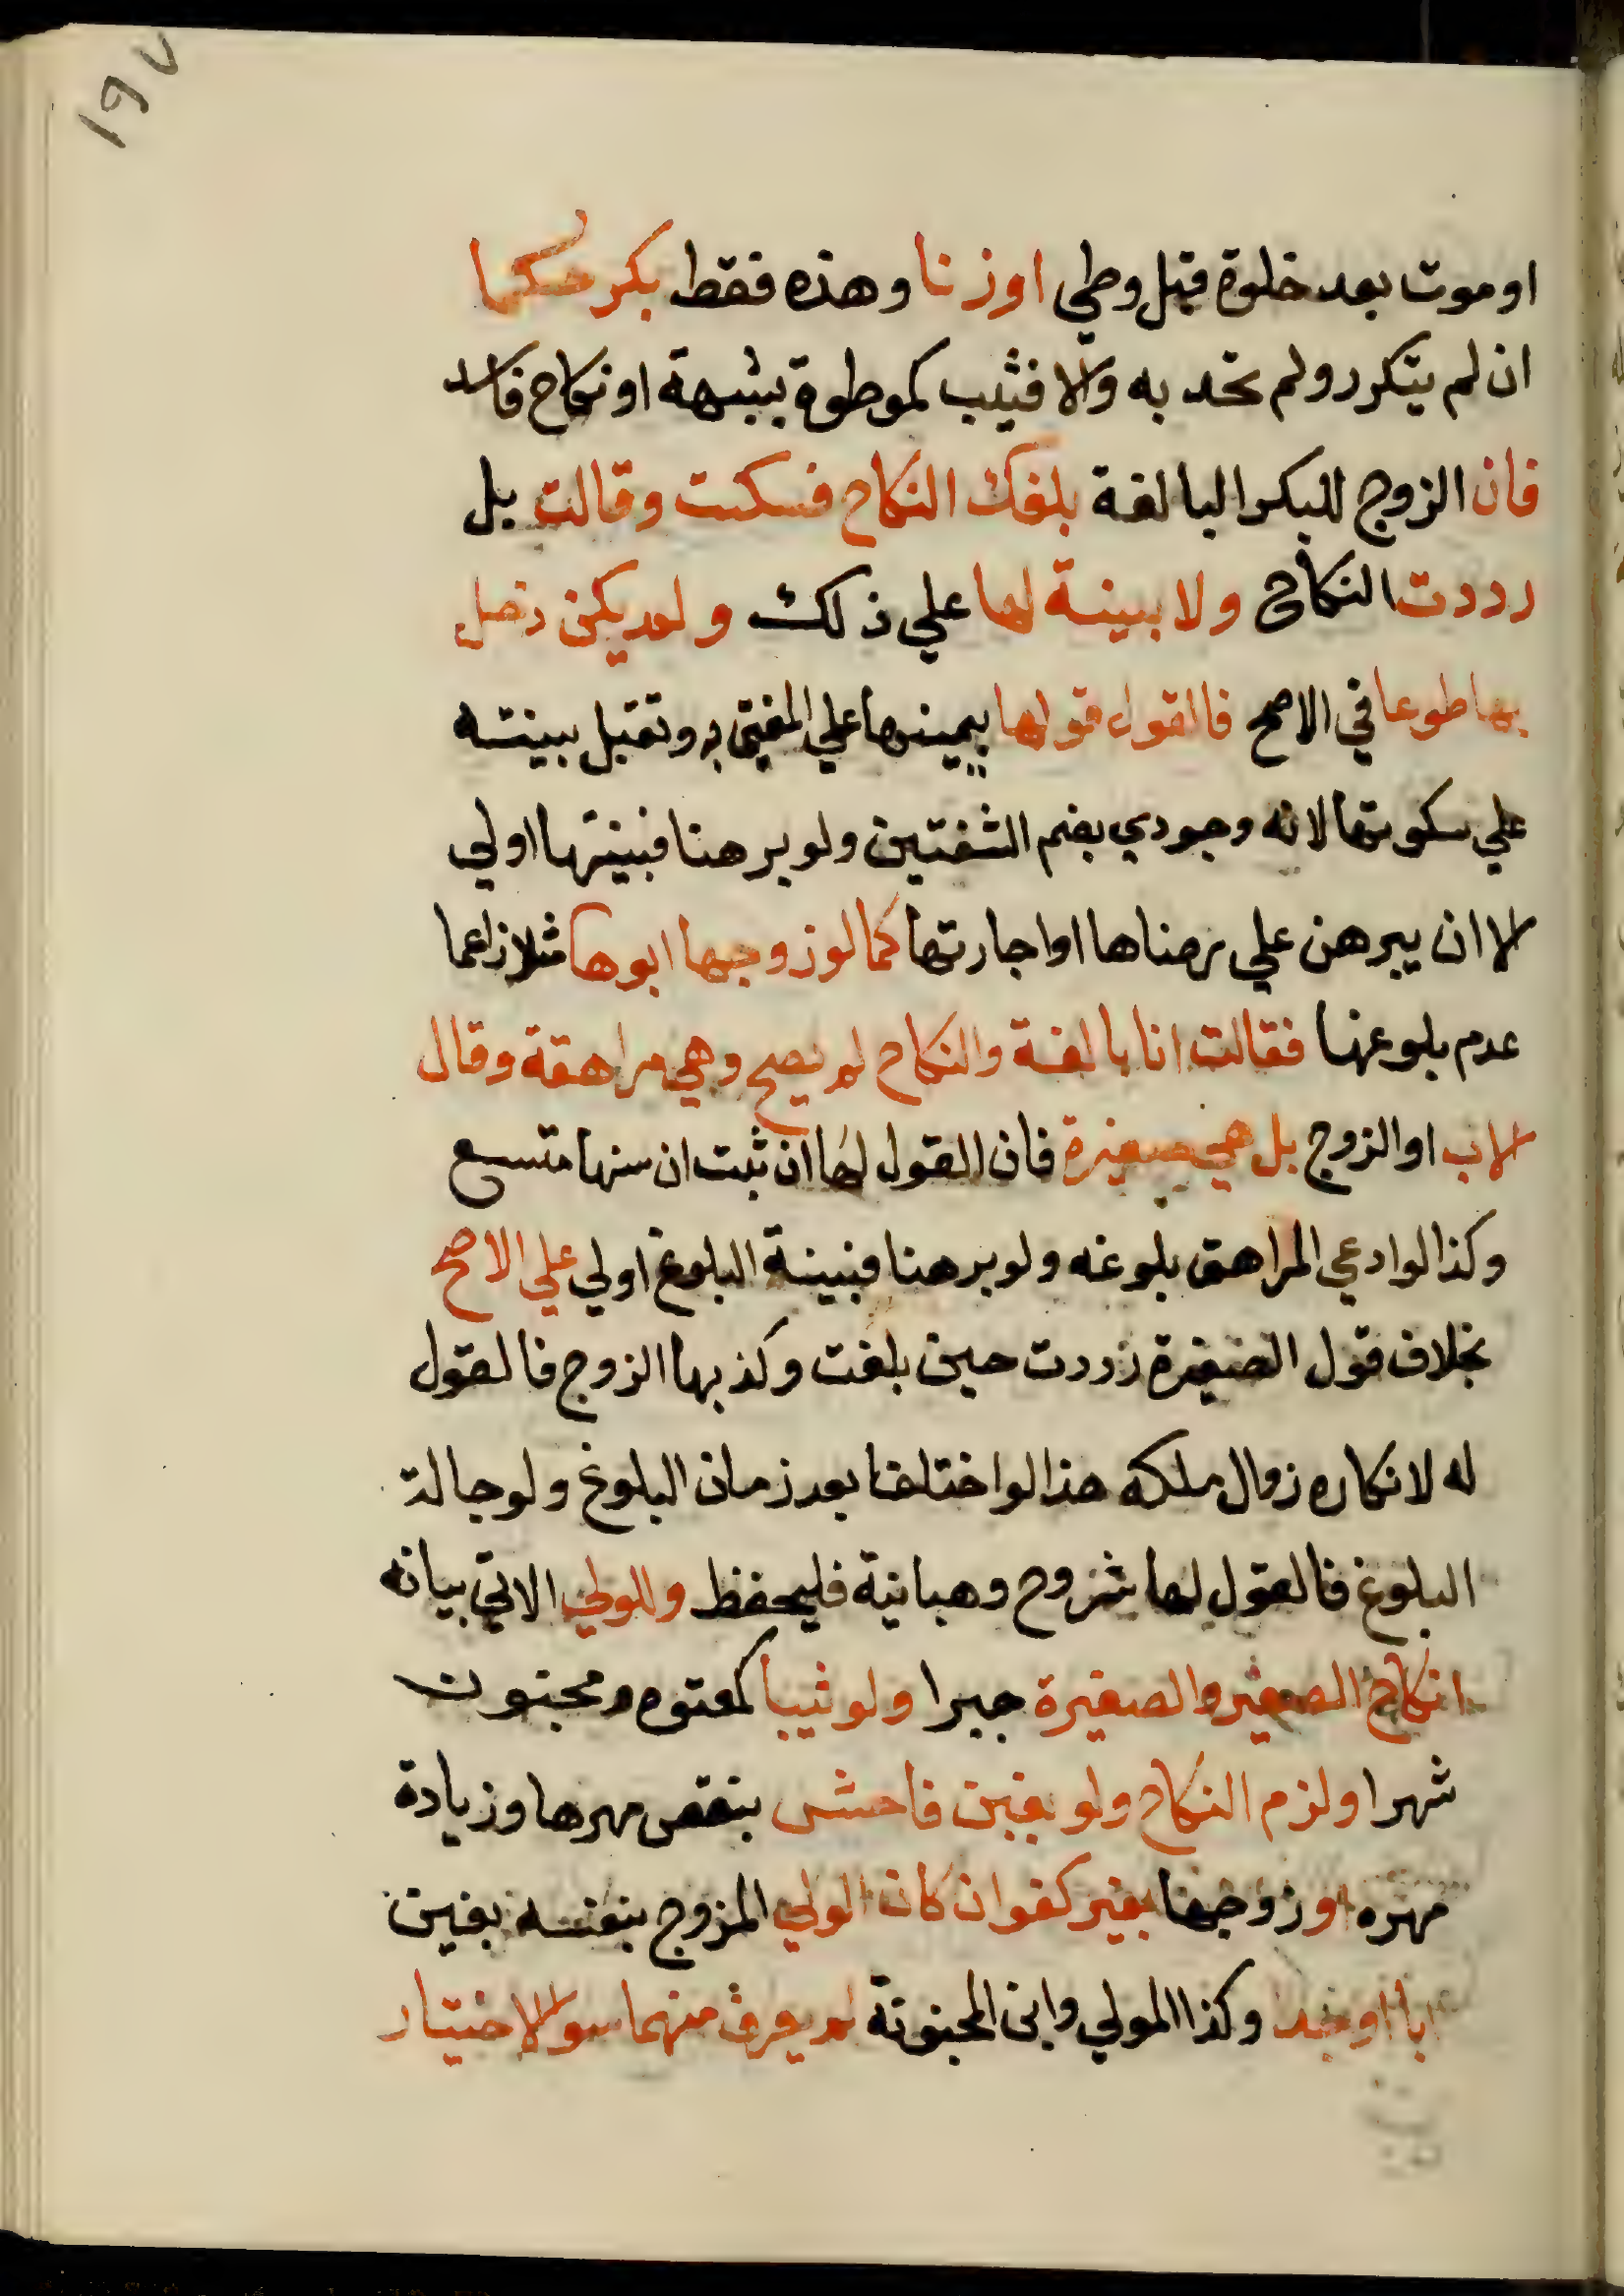 ١٩٧
او موت بعد خلوة قبل وطي او زنا وهذه فقط بكر حكما
ان لم يتكرر ولم تحد به والا فثيب كموطوة بشبهة او نكاح فاسد
فان الزوج للبكر البالغة بلغك النكاح فسكت وقالت بل
رددت النكاح ولا بينة لها علي ذلك ولم يكن دخل
بها طوعا في الاصح فالقول قولها بيمينها علي المفتي به وتقبل بينته
علي سكوتها لانه وجودي بضم الشفتين ولو برهنا فبينتها اولي
الا ان يبرهن علي رضاها او اجازتها كما لو زوجها ابوها مثلا زاعما
عدم بلوغها فقالت انا بالغة والنكاح لم يصح وهي مراهقة وقال
الاب او الزوج بل هي صغيرة فان القول لها ان ثبت ان سنها تسع
وكذا لو ادعي المراهق بلوغه ولو برهنا فبينة البلوغ اولي علي الاصح
بخلاف قول الصغيرة رددت حين بلغت وكذبها الزوج فالقول
له لانكاره زوال ملكه هذا لو اختلفا بعد زمان البلوغ ولو حالة
البلوغ فالقول لها شروح وهبانية فليحفظ وللولي الاتي بيانه
انكاح الصغير والصغيرة جبرا ولو ثيبا كمعتوه ومجنون
شهرا ولزم النكاح ولو بغبن فاحش بنقص مهرها وزيادة
مهره او زوجها بغير كفو ان كان الولي المزوج بنفسه بغبن
ابا او جدا وكذا المولي وابن المجنونة لم يعرف منهما سو الاختيار